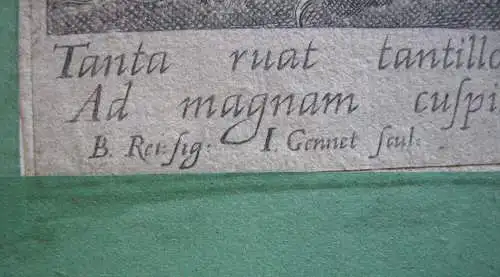 Tanta ruat tantillo
Ad magnam cuſpi
B. Rei: fig: I. Gennet ſcul: